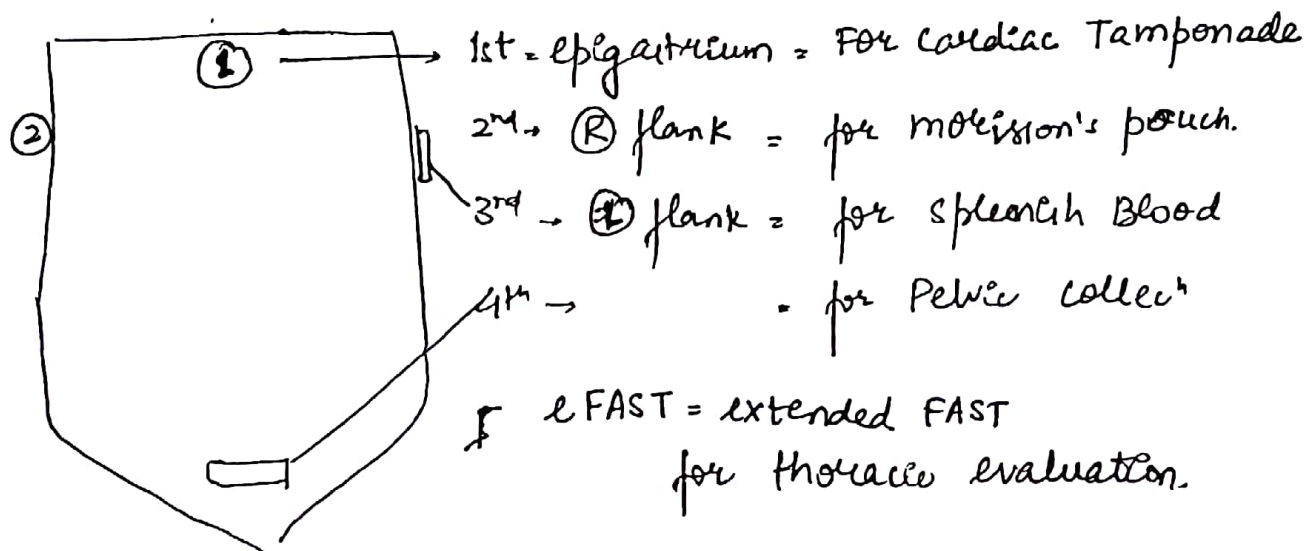 ① → 1st = epigastrium = For cardiac Tamponade
② 2nd → Ⓡ flank = for morisson's pouch.
3rd → Ⓛ flank = for splenich Blood
4th → = for Pelvic collecⁿ
eFAST = extended FAST
for thoracic evaluation.